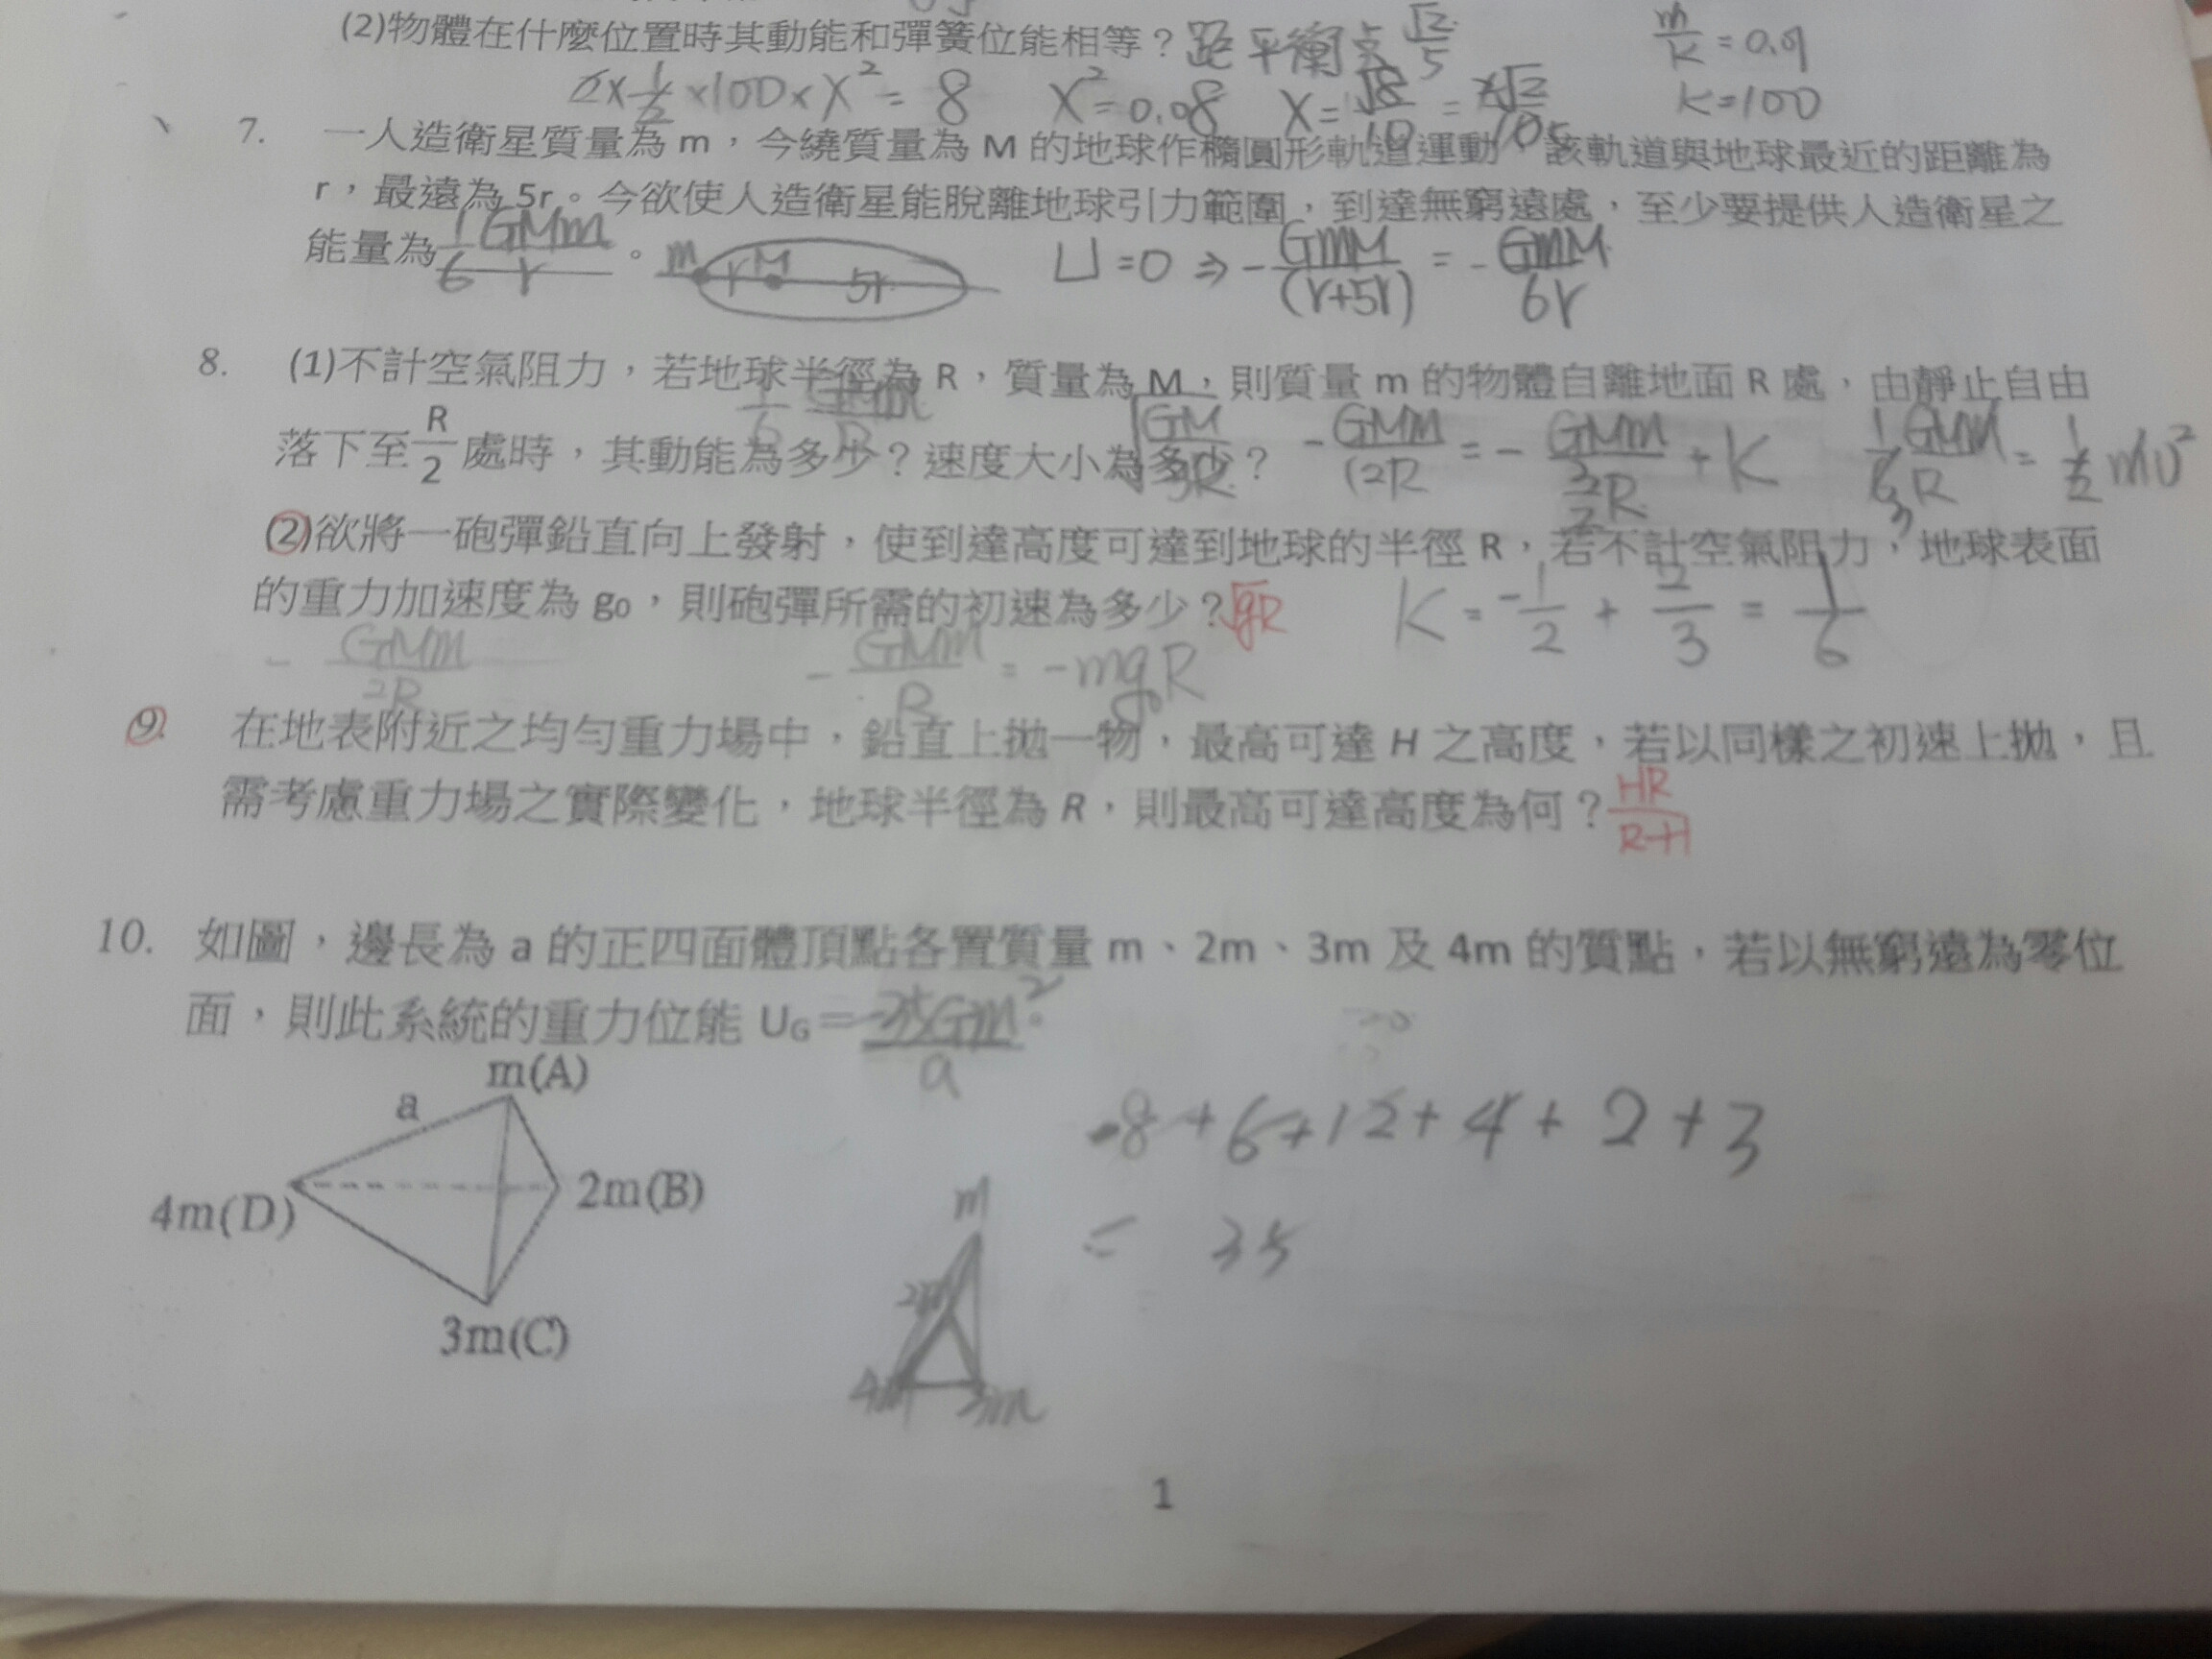 (2)物體在什麼位置時其動能和彈簧位能相等？距平衡点 √2/5
m/K = 0.09
2×1/2×100×X² = 8 X²=0.08 X=√8/10 = 2√2/10 5
K=100
7. 一人造衛星質量為 m，今繞質量為 M 的地球作橢圓形軌道運動，該軌道與地球最近的距離為
r，最遠為 5r。今欲使人造衛星能脫離地球引力範圍，到達無窮遠處，至少要提供人造衛星之
能量為 1/6 GMm/r 。 m r M 5r U=0 ⇒ -GmM/(r+5r) = -GmM/6r
8. (1)不計空氣阻力，若地球半徑為 R，質量為 M，則質量 m 的物體自離地面 R 處，由靜止自由
1/6 GMm/R √GM/3R
落下至 R/2 處時，其動能為多少？速度大小為多少？ -GMm/(2R = -GMm/3/2R + K 1/6 3 GMm/R = 1/2 mv²
(2)欲將一砲彈鉛直向上發射，使到達高度可達到地球的半徑 R，若不計空氣阻力，地球表面
的重力加速度為 g₀，則砲彈所需的初速為多少？√gR K = -1/2 + 2/3 = 1/6
-GMm/2R -GMm/R = -mg₀R
9. 在地表附近之均勻重力場中，鉛直上拋一物，最高可達 H 之高度，若以同樣之初速上拋，且
需考慮重力場之實際變化，地球半徑為 R，則最高可達高度為何？HR/R-H
10. 如圖，邊長為 a 的正四面體頂點各置質量 m、2m、3m 及 4m 的質點，若以無窮遠為零位
面，則此系統的重力位能 UG＝-35Gm²/a。
m(A)
a
-8+6+12+4+2+3
4m(D)
2m(B)
m
= 35
2m
3m(C)
4m 3m
1